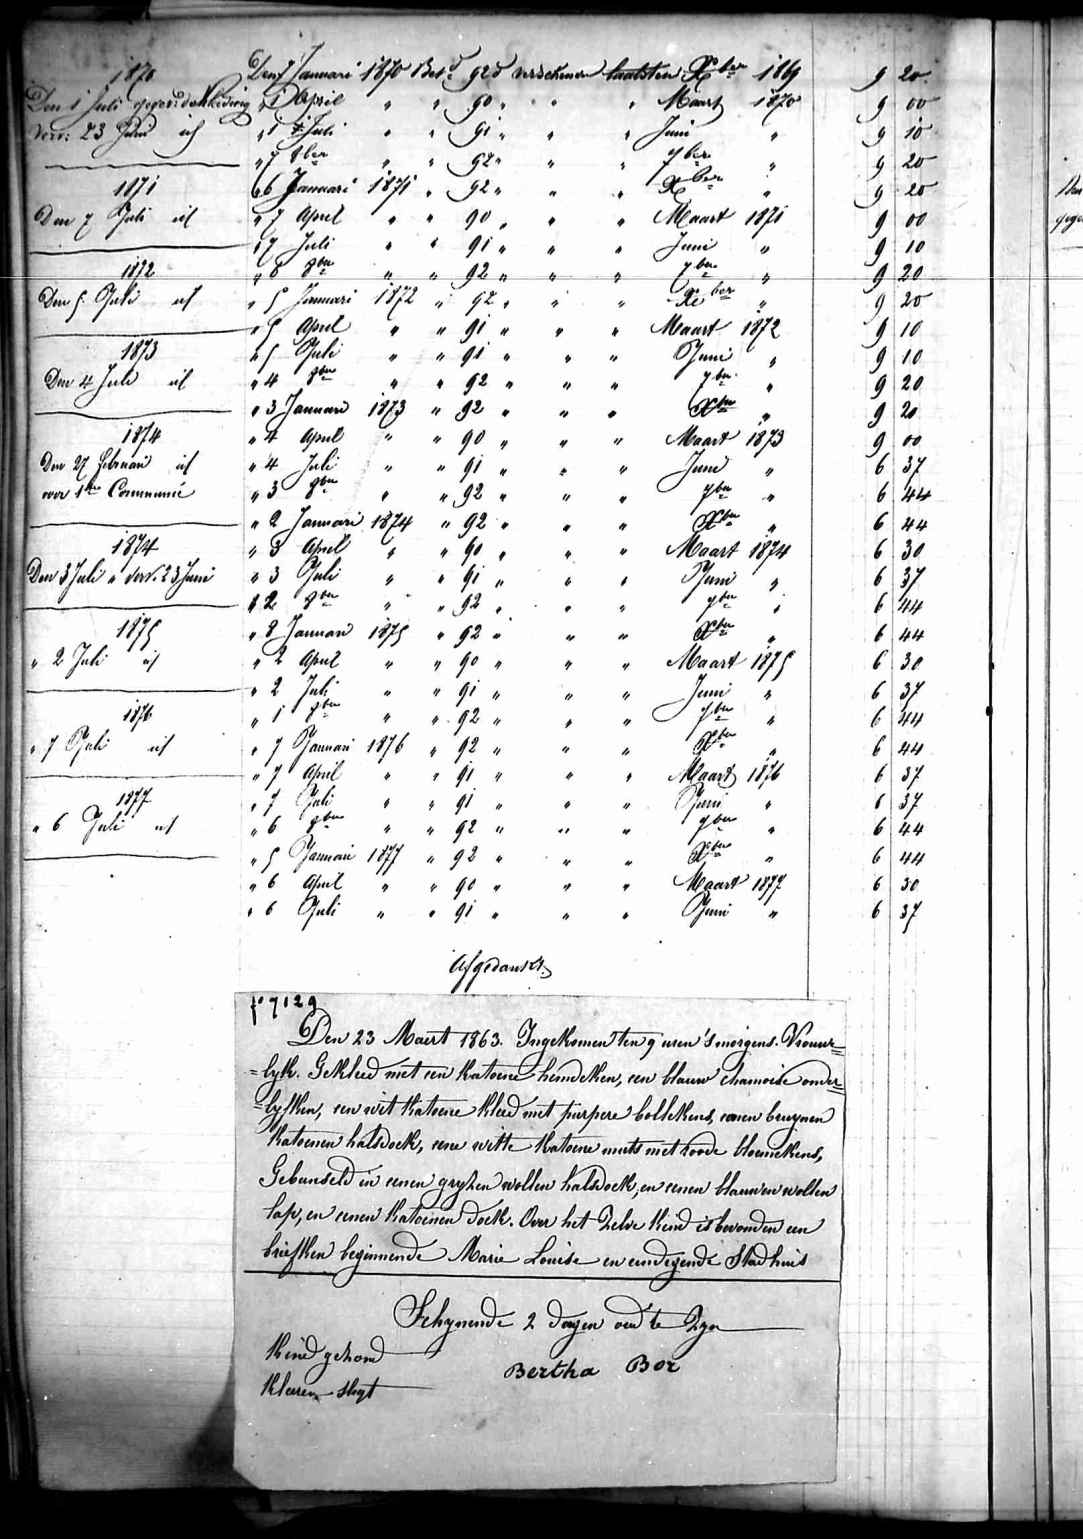 1870
Den 1 Juli gegev: de kleeding
verv: 23 Juni id
1871
Den 7 Juli id
1872
Den 5 Juli id
1873
Den 4 Juli id
1874
Den 27 Februari id
voor 1ste Communie
1874
Den 3 Juli " verv. 23 Juni
1875
" 2 Juli id
1876
" 7 Juli id
1877
" 6 Juli id
Den 7 Januari 1870 Bet.d 92 d verschenen laatsten Xber 1869 9 20
" 1 April " " 90 " " " Maart 1870 9 00
" 1 Juli " " 91 " " " Juni " 9 10
" 7 8ber " " 92 " " " 7ber " 9 20
" 6 Januari 1871 " 92 " " " Xber " 9 20
" 7 April " " 90 " " " Maart 1871 9 00
" 7 Juli " " 91 " " " Juni " 9 10
" 6 8ber " " 92 " " " 7ber " 9 20
" 5 Januari 1872 " 92 " " " Xber " 9 20
" 5 April " " 91 " " " Maart 1872 9 10
" 5 Juli " " 91 " " " Juni " 9 10
" 4 8ber " " 92 " " " 7ber " 9 20
" 3 Januari 1873 " 92 " " " Xber " 9 20
" 4 April " " 90 " " " Maart 1873 9 00
" 4 Juli " " 91 " " " Juni " 6 37
" 3 8ber " " 92 " " " 7ber " 6 44
" 2 Januari 1874 " 92 " " " Xber " 6 44
" 3 April " " 90 " " " Maart 1874 6 30
" 3 Juli " " 91 " " " Juni " 6 37
" 2 8ber " " 92 " " " 7ber " 6 44
" 8 Januari 1875 " 92 " " " Xber " 6 44
" 2 April " " 90 " " " Maart 1875 6 30
" 2 Juli " " 91 " " " Juni " 6 37
" 1 8ber " " 92 " " " 7ber " 6 44
" 7 Januari 1876 " 92 " " " Xber " 6 44
" 7 April " " 91 " " " Maart 1876 6 37
" 7 Juli " " 91 " " " Juni " 6 37
" 6 8ber " " 92 " " " 7ber " 6 44
" 5 Januari 1877 " 92 " " " Xber " 6 44
" 6 April " " 90 " " " Maart 1877 6 30
" 6 Juli " " 91 " " " Juni " 6 37
Afgedankt
fo 7129
Den 23 Maert 1863. Ingekomen ten 9 uren 's morgens. Vrouwe=
=lyk. Gekleed met een katoene hemdeken, een blauw chamoise onder=
=lyfken, een wit katoene kleed met purpere bollekens, eenen bruynen
katoenen halsdoek, eene witte katoene muts met roode bloemekens,
Gebunseld in eenen gryzen wollen halsdoek, en eenen blauwen wollen
lap, en eenen katoenen doek. Over het zelve kind is bevonden een
briefken beginnende Marie Louise en eindegende Stadhuis
Schynende 2 dagen oud te zyn
Kind gezond
Kleeren slegt
Bertha Bor